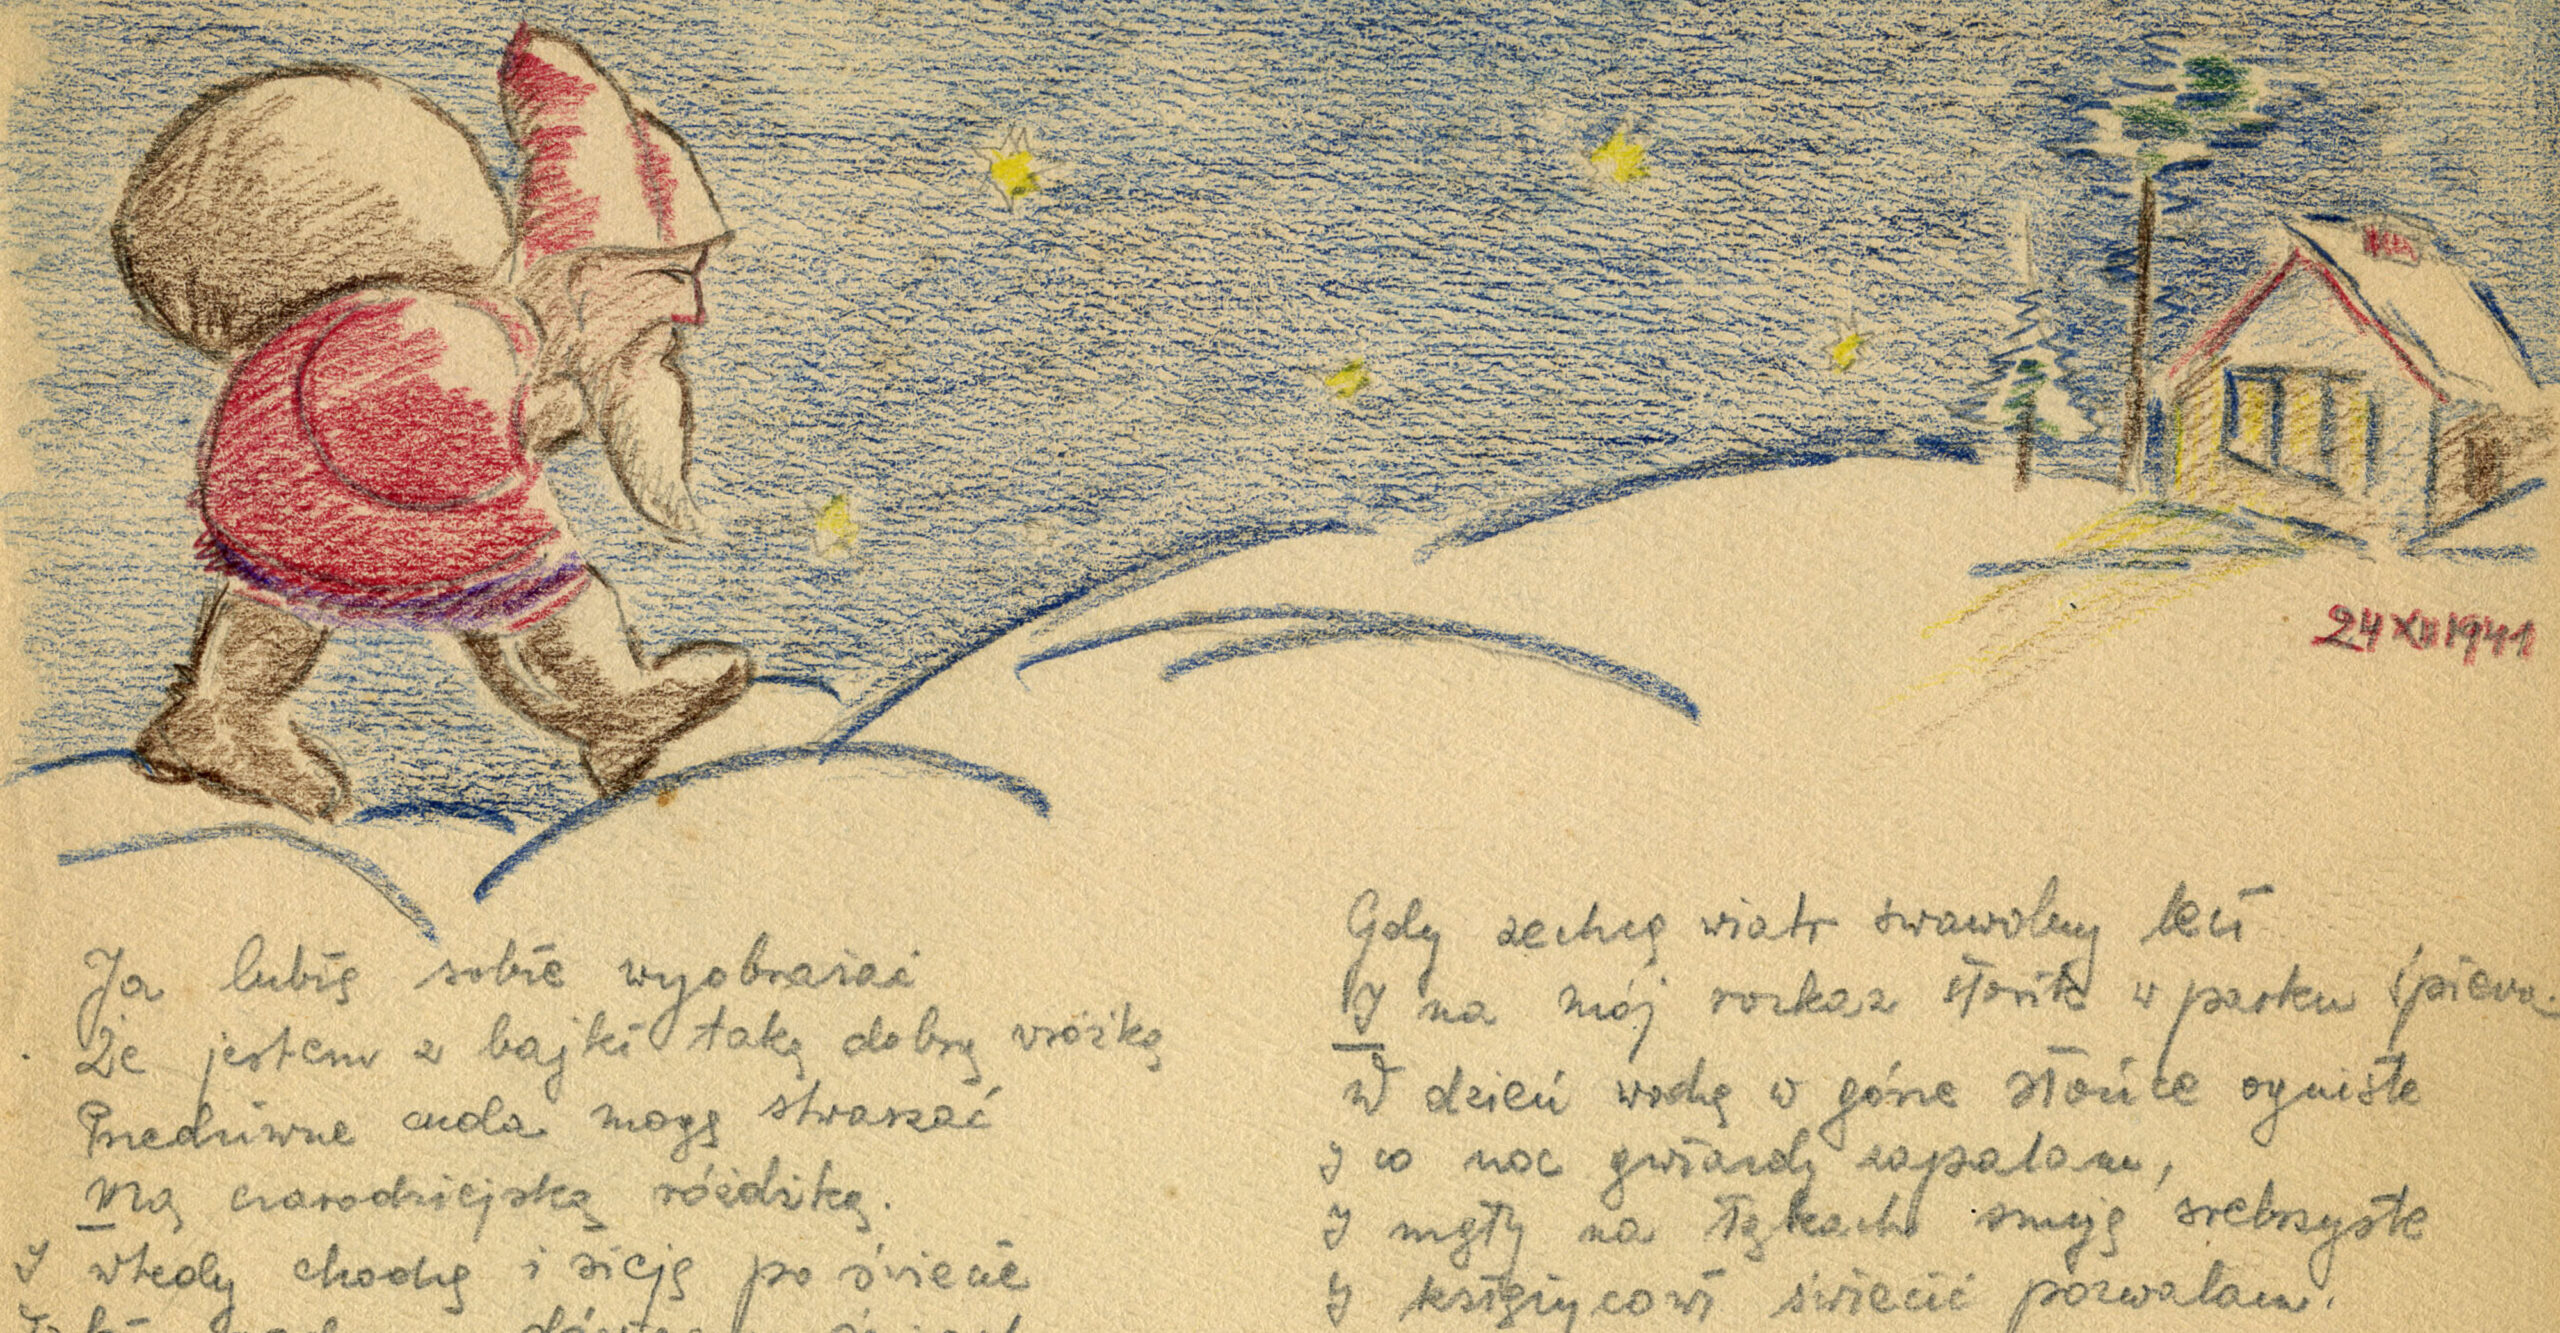 24 XII 1941
Ja lubię sobie wyobrażać
Że jestem z bajki taką dobrą wróżką
Przedziwne cuda mogę stwarzać
Mą czarodziejską różdżką.
I wtedy chodzę i sieję po świecie
Gdy zechcę wiatr swawolny leci
I na mój rozkaz słowik w parku śpiewa.
W dzień wodzę w górze słońce ogniste
I co noc gwiazdy zapalam,
I mgły na łąkach snuję srebrzyste
I księżycowi świecić pozwalam.